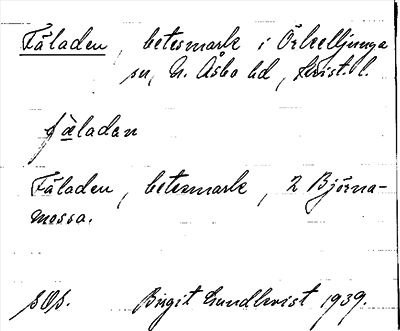 Fäladen, betesmark i Örkelljunga
sn, N. Åsbo hd, Krist. l.
fäladan
Fäladen, betesmark, 2 Björna-
mossa.
sOs. Birgit Lundkvist 1939.